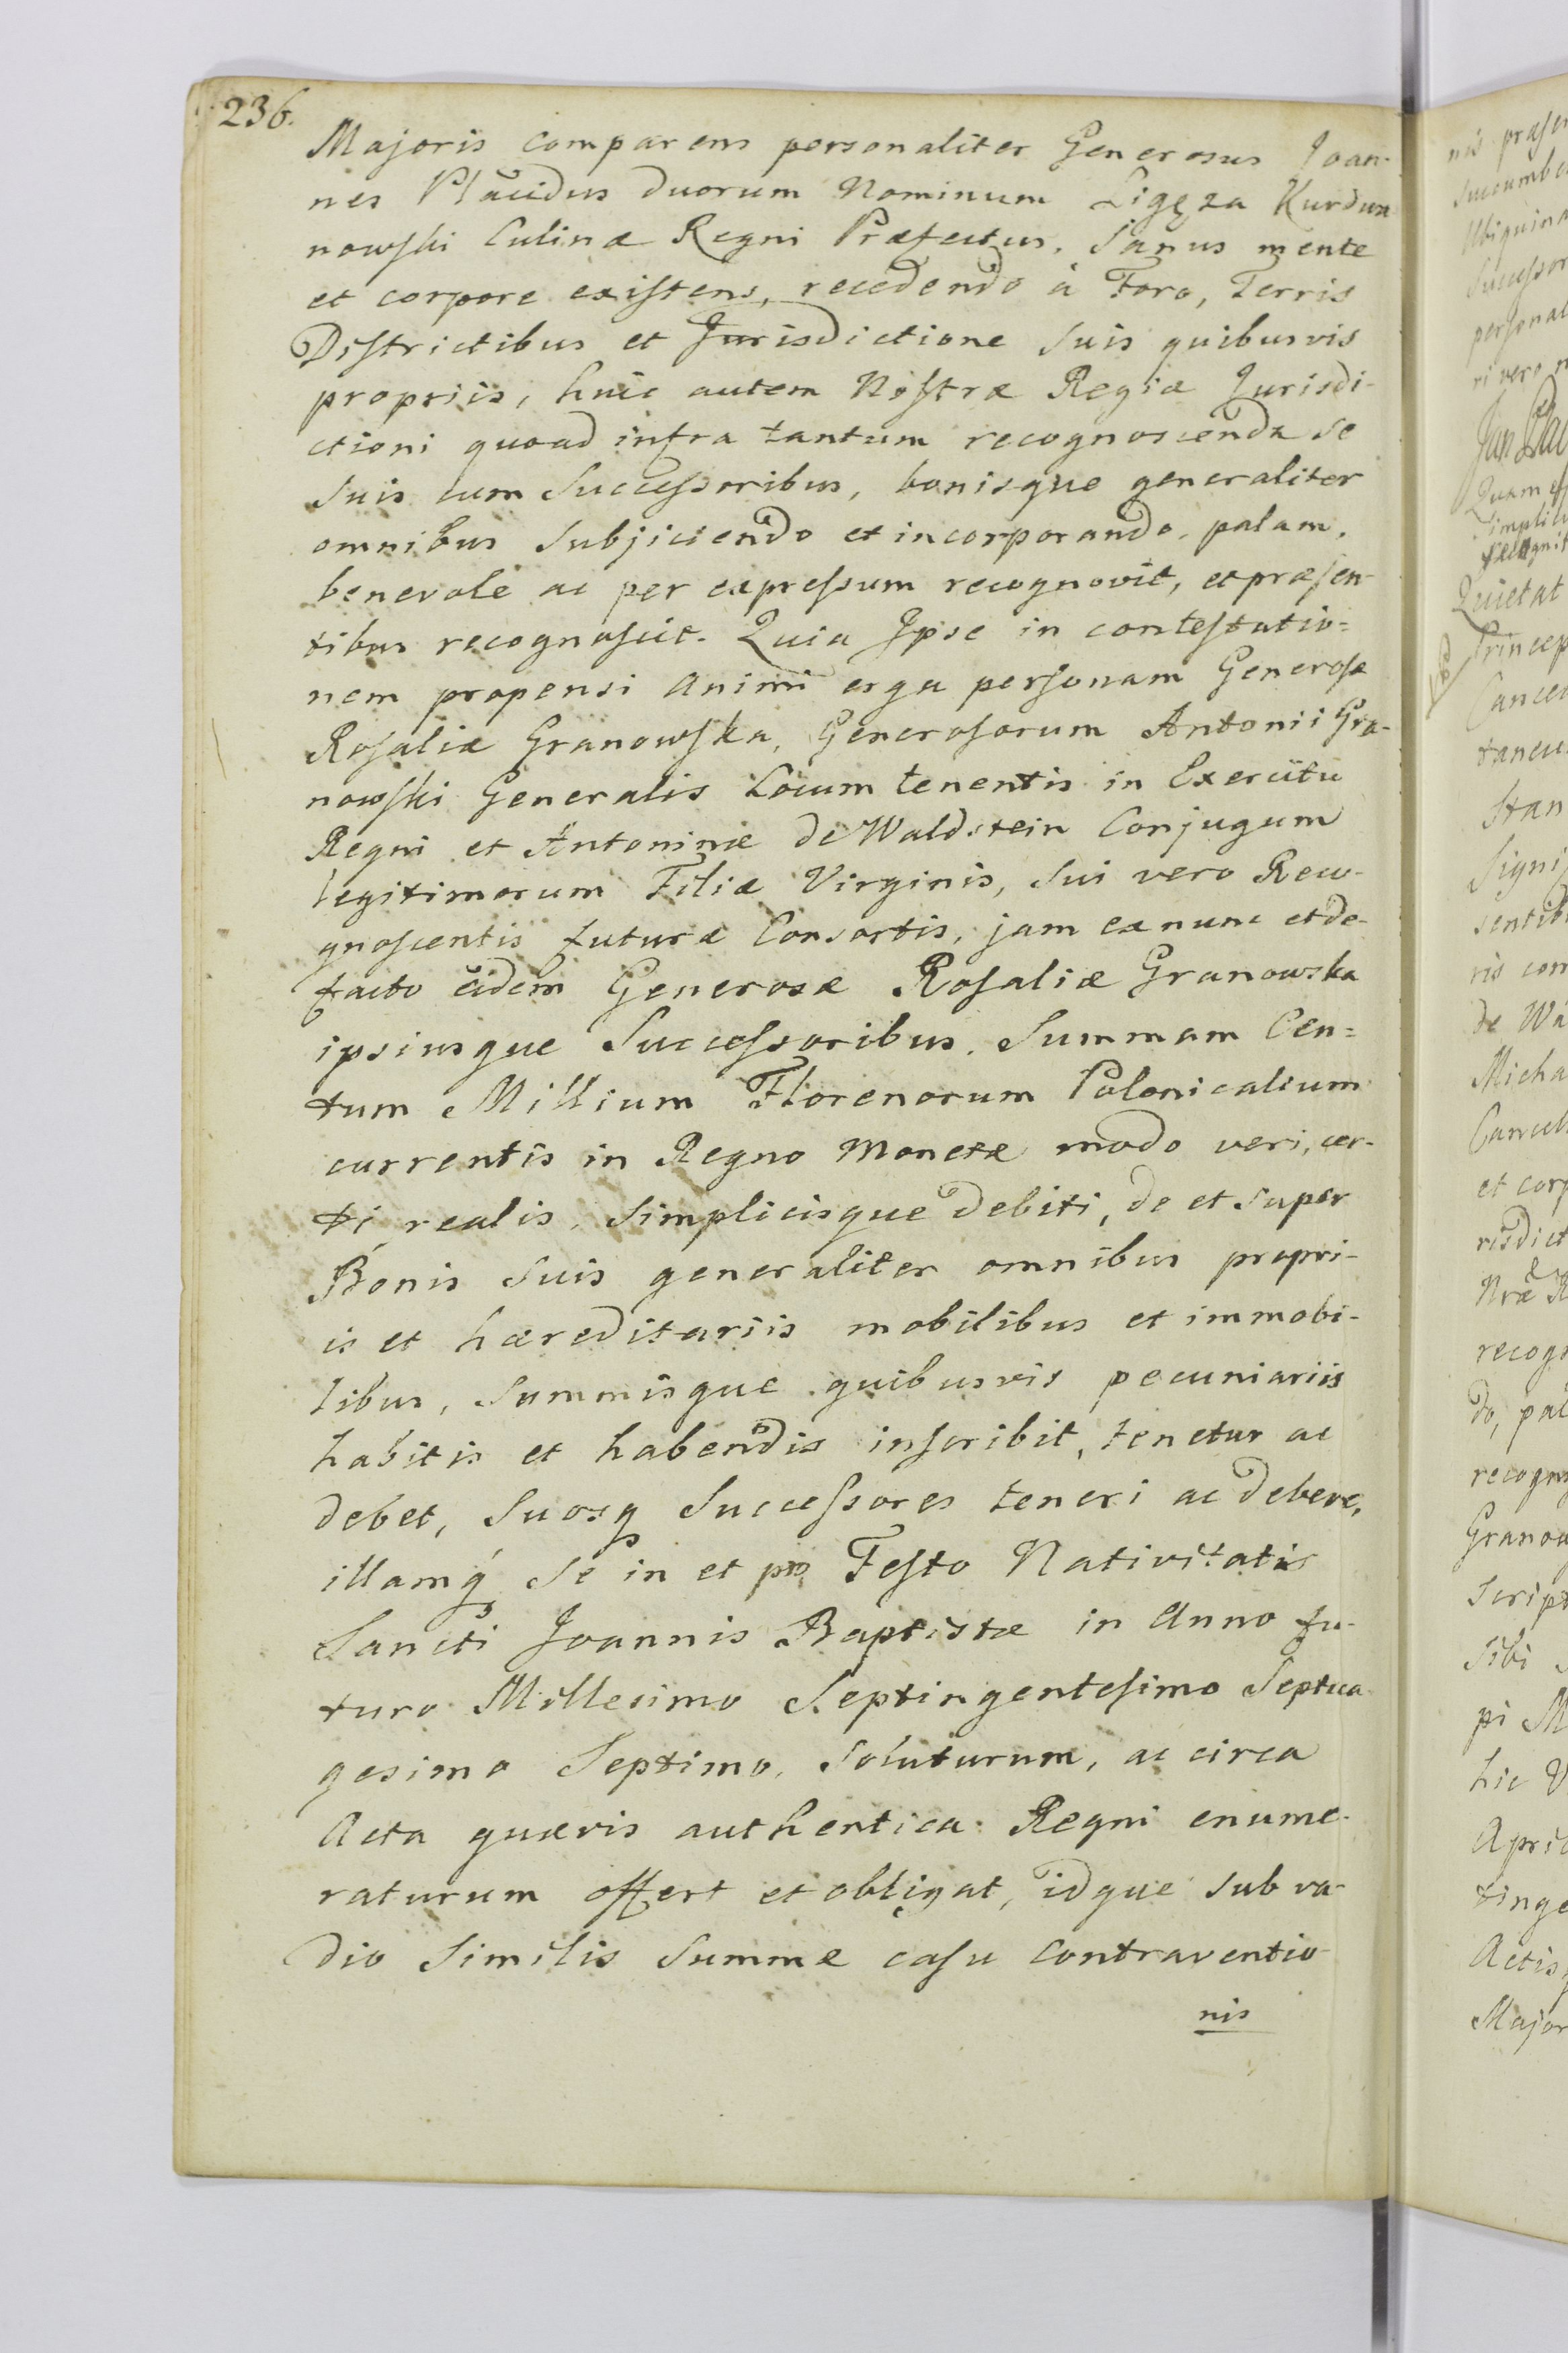 236.
Majoris comparens personaliter Generosus Joan-
nes Placidus duorum Nominum Ligęza Kurdwa
nowski Culinæ Regni Præfectus. Sanus mente
et corpore existens, recedendo à Foro, Terris
Districtibus et Jurisdictione Suis quibusvis
propriis, huic autem Nostræ Regiæ Jurisdi-
ctioni quoad infra tantum recognoscenda se
Suis cum Successoribus, bonisque generaliter
omnibus Subjiciendo et incorporando, palam,
benevole ac per expressum recognovit, et præsen-
tibus recognoscit. Quia Ipse in contestatio=
nem propensi Animi erga personam Generosæ
Rosaliæ Granowska, Generosorum Antonii Gra-
nowski Generalis Locum tenentis in Exercitu
Regni et Antoninæ de Waldstein Conjugum
legitimorum Filiæ Virginis, Sui vero Reco-
gnoscentis futuræ Consortis, jam ex nunc et de
facto eidem Generosæ Rosaliæ Granowska
ipsiusque Successoribus. Summam Cen=
tum Millium Florenorum Polonicalium
currentis in Regno Monetæ modo veri, cer-
ti, realis, Simplicisque debiti, de et super
Bonis Suis generaliter omnibus propri-
is et hæreditariis mobilibus et immobi-
libus, Summisque quibusvis pecuniariis
habitis et habendis inscribit, tenetur ac
debet, Suosq Successores teneri ac debere,
illamq́ Se in et pro Festo Nativitatis
Sancti Joannis Baptistæ in Anno fu-
turo Millesimo Septingentesimo Septua
gesimo Septimo, Soluturum, ac circa
Acta quævis authentica Regni enume-
raturum offert et obligat, idque sub va-
dio Similis Summæ casu contraventio-
nis
Succumbe
Ubiquina
Successor
personal
ri vero n
Quam
Quietat
Princep
tancu
Stan
Signi
sentib
ris com
de Wa
Micha
Cancel
et corp
risdict
Nræ R
recogn
do, pal
recogno
Granow
Script
Sibi
pi M
hic V
April
tinge
Actis
Major